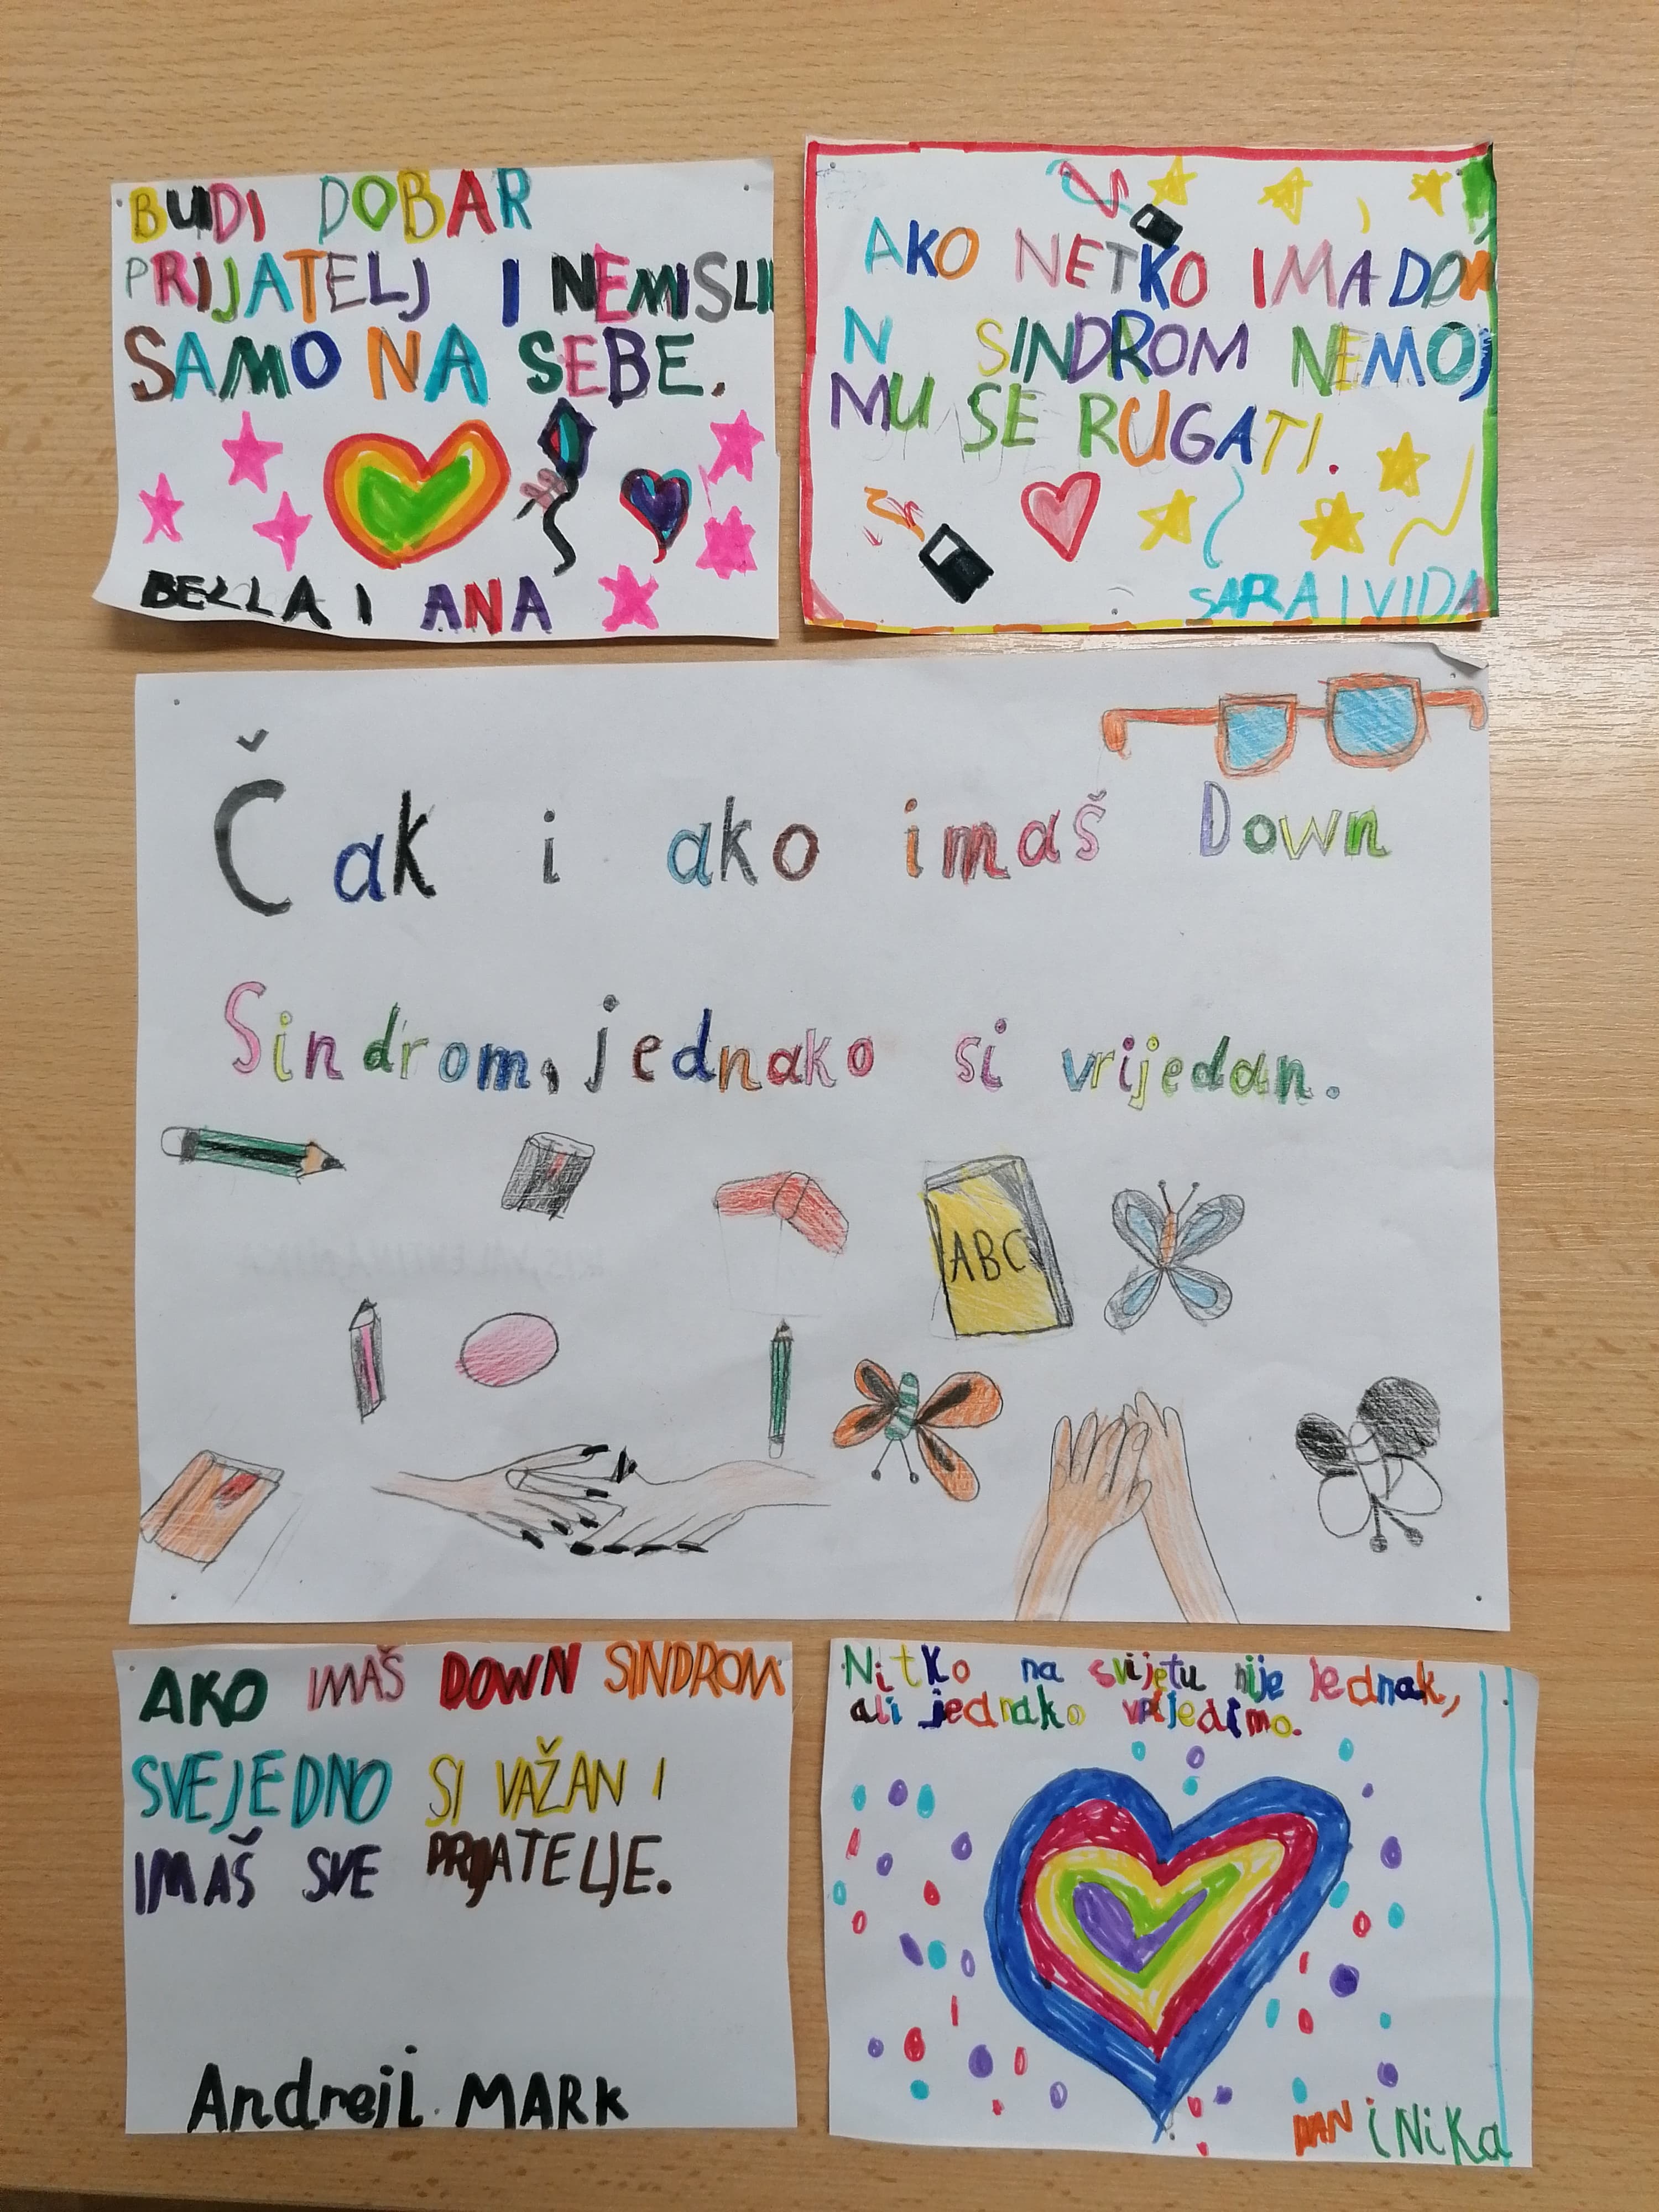 BUDI DOBAR
PRIJATELJ I NEMISLI
SAMO NA SEBE.
BELLA I ANA
AKO NETKO IMA DOW
N SINDROM NEMOJ
MU SE RUGATI.
SARA I VIDA
Čak i ako imaš Down
Sindrom, jednako si vrijedan.
ABC
AKO IMAŠ DOWN SINDROM
SVEJEDNO SI VAŽAN I
IMAŠ SVE PRIJATELJE.
Andrej i MARK
Nitko na svijetu nije jednak,
ali jednako vrijedimo.
DAN i NiKa